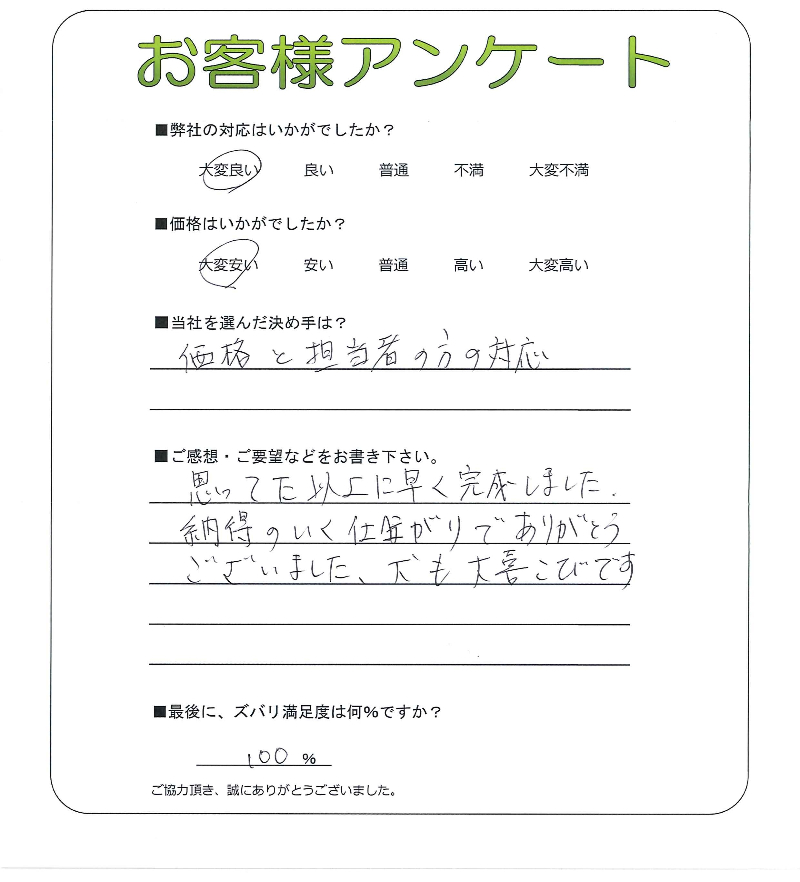 お客様アンケート
■弊社の対応はいかがでしたか？
大変良い 良い 普通 不満 大変不満
■価格はいかがでしたか？
大変安い 安い 普通 高い 大変高い
■当社を選んだ決め手は？
価格と担当者の方の対応
■ご感想・ご要望などをお書き下さい。
思ってた以上に早く完成しました.
納得のいく仕上がりでありがとう
ございました、犬も大喜こびです
■最後に、ズバリ満足度は何％ですか？
100 %
ご協力頂き、誠にありがとうございました。